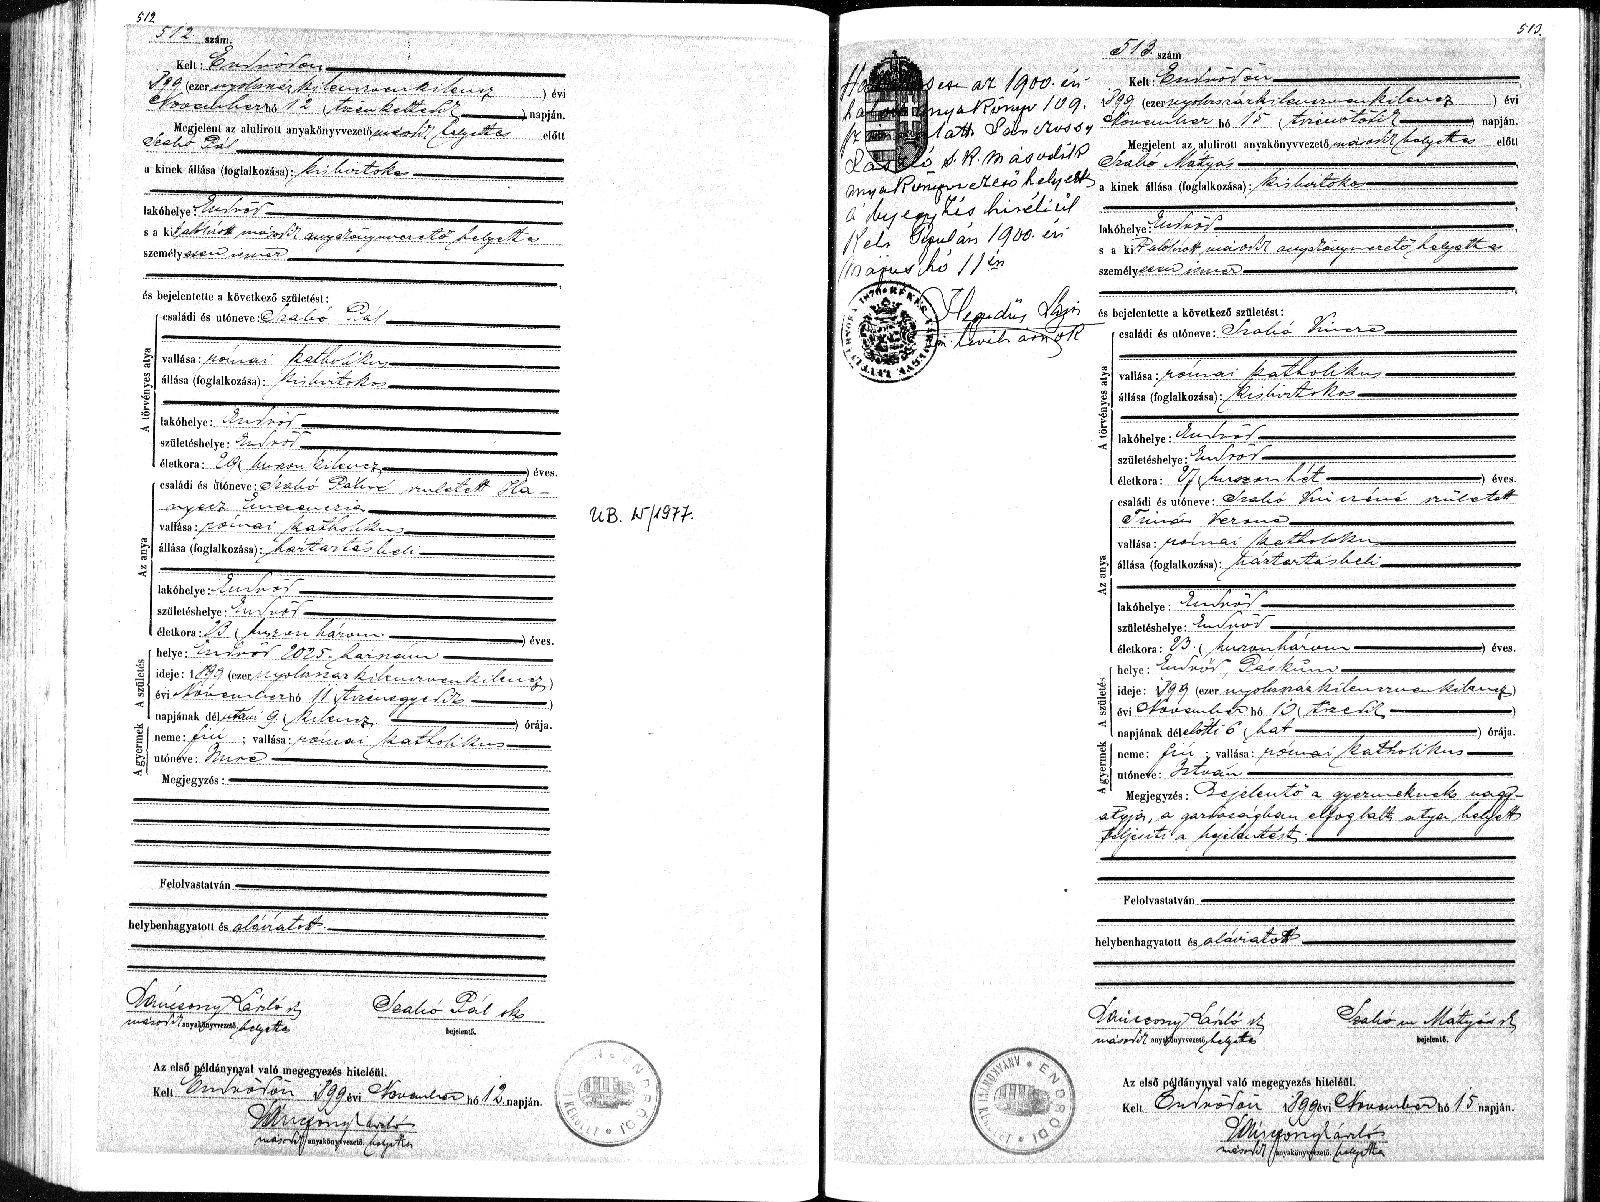 512.
512 szám.
Kelt: Endrődön
1899 (ezernyolcszázkilenczvenkilencz) évi
November hó 12 (tizenkettedik) napján.
Megjelent az alulirott anyakönyvvezető második helyettes előtt
Szabó Pál
a kinek állása (foglalkozása): kisbirtokos
lakóhelye: Endrőd
s a kit alulirott második anyakönyvvezető helyettes
személyesen ismer
és bejelentette a következő születést:
A törvényes atya
családi és utóneve: Szabó Pál
vallása: római katholikus
állása (foglalkozása): kisbirtokos
lakóhelye: Endrőd
születéshelye: Endrőd
életkora: 29 (huszonkilencz) éves.
Az anya
családi és utóneve: Szabó Pálné született Ha-
nyecz
vallása: római katholikus
állása (foglalkozása): háztartásbeli
lakóhelye: Endrőd
születéshelye: Endrőd
életkora: 23 (huszonhárom) éves.
A születés
helye: Endrőd 2025. házszám
ideje: 1899 (ezernyolcszázkilenczvenkilencz)
évi November hó 11 (tizenegyedik)
napjának délutáni 9 (kilencz) órája.
A gyermek
neme: fiú; vallása: római katholikus
utóneve: Imre
Megjegyzés:
Felolvastatván
helybenhagyatott és aláíratott.
László sk
Szabó Pál sk
második anyakönyvvezető helyettes
bejelentő.
Az első példánynyal való megegyezés hiteléül.
Kelt Endrődön 1899 évi November hó 12. napján.
László
második anyakönyvvezető helyettes
ENDRŐDI
UB. IV/1977.
513.
az 1900. évi
halotti anyakönyv 109.
László s.k. második
anyakönyvvezető helyettes
A bejegyzés hiteléül
Kelt Gyulán 1900. évi
május hó 11én
Hegedűs
1876 BÉKÉS VÁRMEGYE LEVÉLTÁRNOKA
513. szám
Kelt: Endrődön
1899 (ezernyolcszázkilenczvenkilencz) évi
November hó 15 (tizenötödik) napján.
Megjelent az alulirott anyakönyvvezető második helyettes előtt
Szabó Mátyás
a kinek állása (foglalkozása): kisbirtokos
lakóhelye: Endrőd
s a kit alulirott második anyakönyvvezető helyettes
személyesen ismer
és bejelentette a következő születést:
A törvényes atya
családi és utóneve: Szabó Vincze
vallása: római katholikus
állása (foglalkozása): kisbirtokos
lakóhelye: Endrőd
születéshelye: Endrőd
életkora: 27 (huszonhét) éves.
Az anya
családi és utóneve: Szabó Vinczéné született
Tímár Verona
vallása: római katholikus
állása (foglalkozása): háztartásbeli
lakóhelye: Endrőd
születéshelye: Endrőd
életkora: 23. (huszonhárom) éves.
A születés
helye: Endrőd,
ideje: 1899 (ezernyolcszázkilenczvenkilencz)
évi November hó 10 (tizedik)
napjának délelőtti 6 (hat) órája.
A gyermek
neme: fiú; vallása: római katholikus
utóneve: István
Megjegyzés: Bejelentő a gyermeknek nagy-
atyja, a gazdaságban elfoglalt atya helyett
teljesíti a bejelentést.
Felolvastatván
helybenhagyatott és aláíratott
László sk
Szabó Mátyás sk
második anyakönyvvezető helyettes
bejelentő.
Az első példánynyal való megegyezés hiteléül.
Kelt Endrődön 1899 évi November hó 15 napján.
László
második anyakönyvvezető helyettes
ENDRŐDI